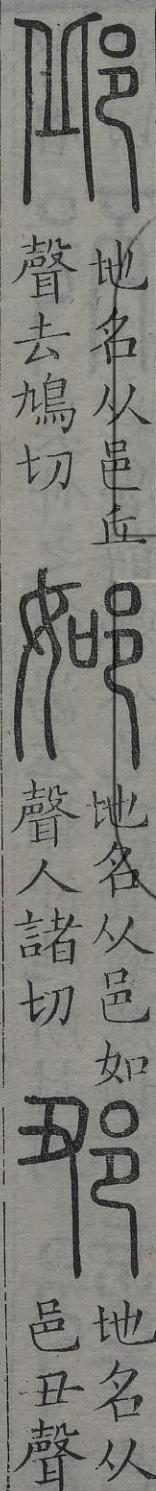 邱
地名从邑丘
聲去鳩切
䣸
地名从邑如
聲人諸切
𨙻
地名从
邑丑聲